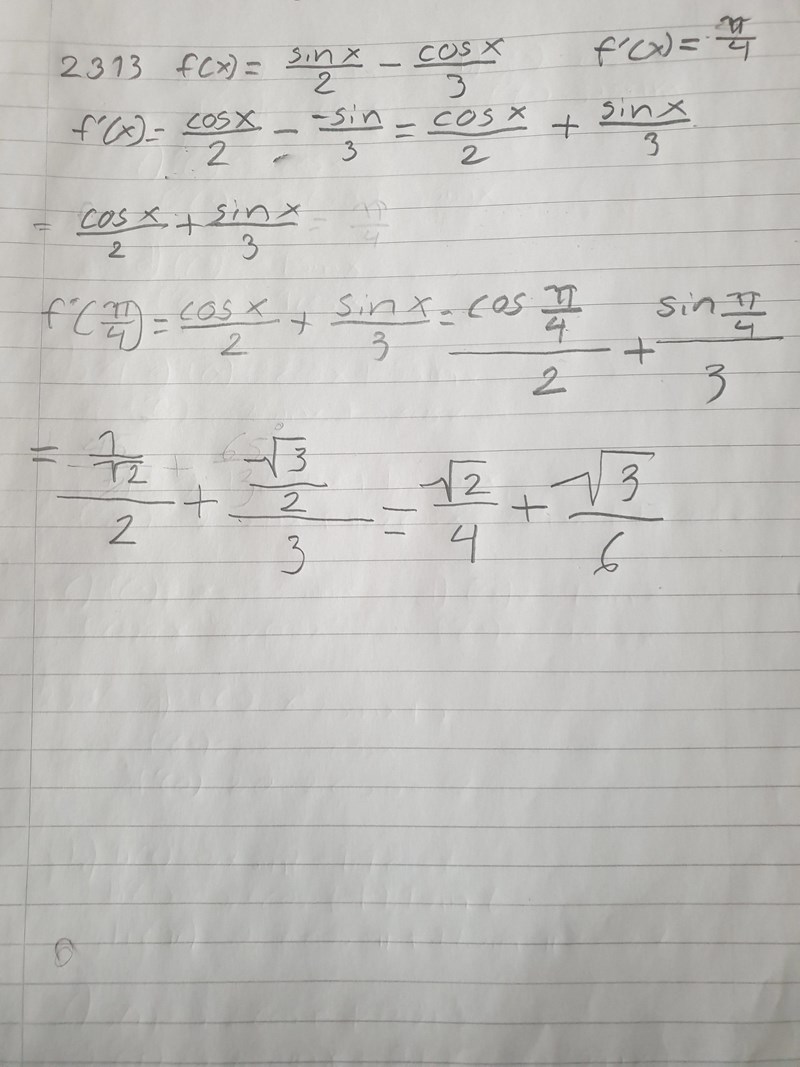 2313 f(x) = sinx/2 - cosx/3 f'(x) = π/4
f'(x) = cosx/2 - -sin/3 = cosx/2 + sinx/3
= cosx/2 + sinx/3 = π/4
f'(π/4) = cosx/2 + sinx/3 = cos π/4 / 2 + sin π/4 / 3
= 1/√2 / 2 + √3/2 / 3 = √2/4 + √3/6